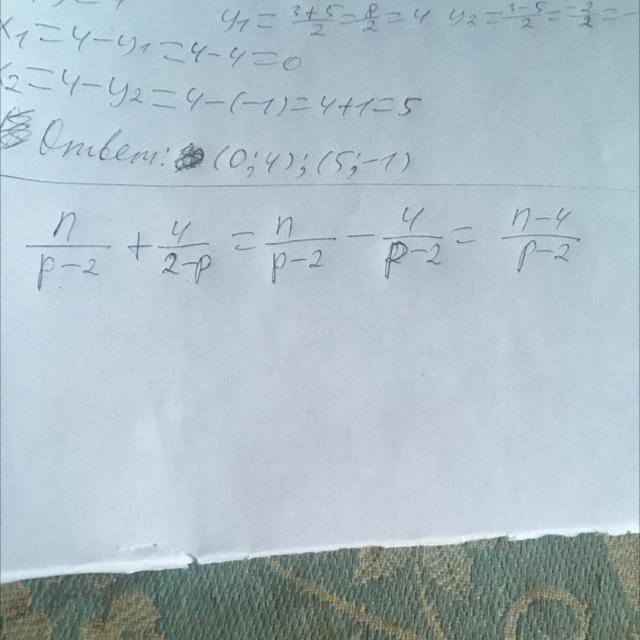 y₁ = (3+5)/2 = 8/2 = 4 y₂ = (3-5)/2 = -2/2 = -
x₁ = 4 - y₁ = 4 - 4 = 0
x₂ = 4 - y₂ = 4 - (-1) = 4 + 1 = 5
Ответ: (0; 4); (5; -1)
n/(p-2) + 4/(2-p) = n/(p-2) - 4/(p-2) = (n-4)/(p-2)